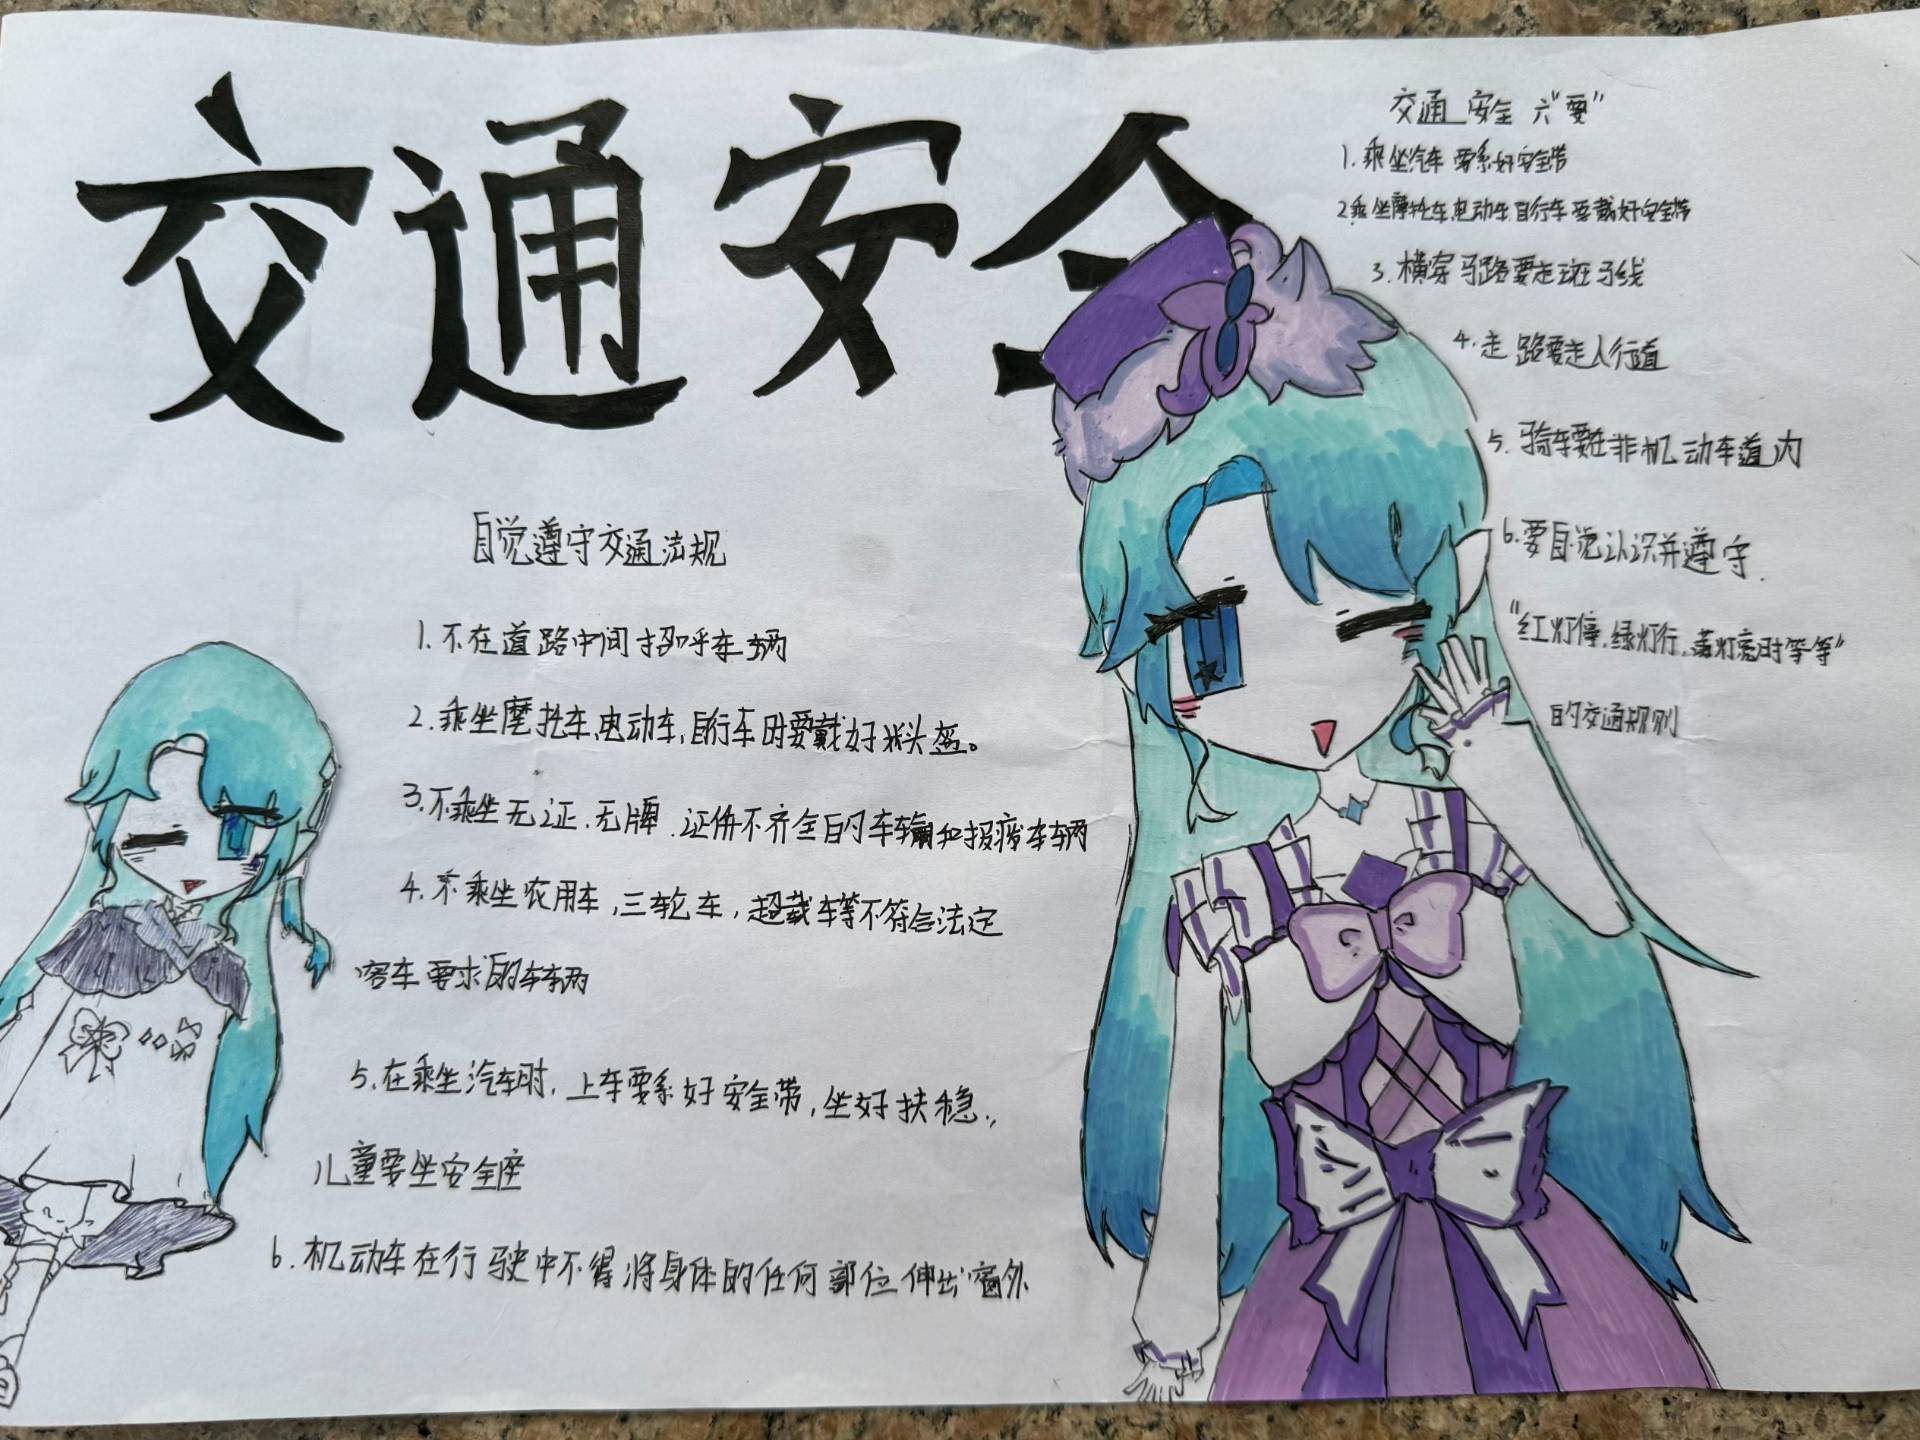 交通安全
自觉遵守交通法规
1.不在道路中间招呼车辆
2.乘坐摩托车,电动车,自行车时要戴好头盔。
3.不乘坐无证.无牌.证件不齐全的车辆和报废车辆
4.不乘坐农用车,三轮车,超载车等不符合法定
客车要求的车辆
5.在乘坐汽车时,上车要系好安全带,坐好扶稳.,
儿童要坐安全座
6.机动车在行驶中不得将身体的任何部位伸出窗外
交通安全六"要"
1.乘坐汽车要系好安全带
2.乘坐摩托车,电动车,自行车要戴好安全带
3.横穿马路要走斑马线
4.走路要走人行道
5.骑车要在非机动车道内
6.要自觉认识并遵守.
"红灯停,绿灯行,黄灯亮时等等"
的交通规则